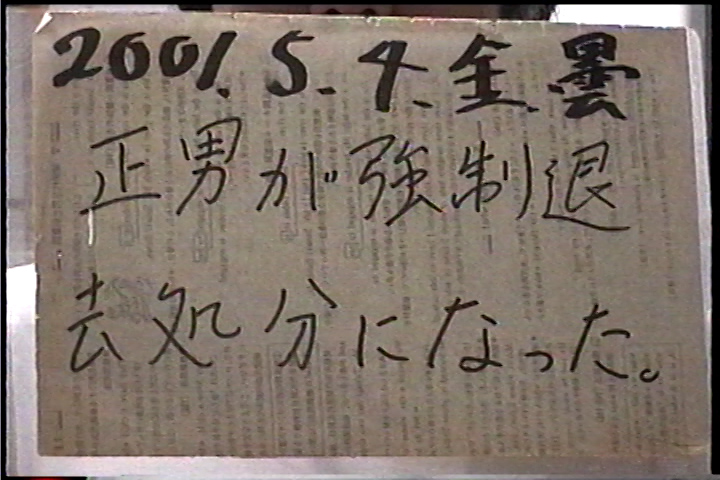 2001.5.4.金.曇
正男が強制退
去処分になった。